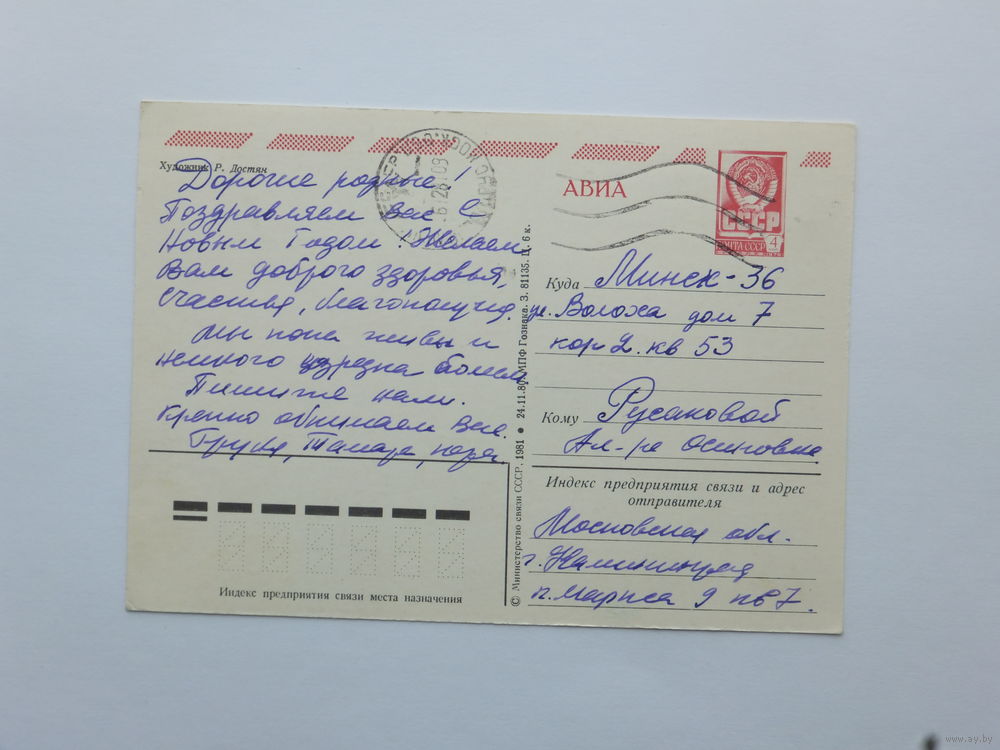 Художник Р. Достян
Дорогие родные!
Поздравляем Вас с
Новым Годом! Желаем
Вам доброго здоровья,
счастья, благополучия.
Мы пока живы и
немного изредка болеем
Пишите нам.
Крепко обнимаем Вас.
Тамара,
Индекс предприятия связи места назначения
© Министерство связи СССР, 1981 ● 24.11.80. МПФ Гознака. З. 81135. Ц. 6 к.
АВИА
СССР
ПОЧТА СССР 4
Куда Минск-36
ул. Волоха дом 7
кор 2. кв 53
Кому Русаковой
Ал-ре Осиповне
Индекс предприятия связи и адрес
отправителя
Московская обл.
г. Калининград
9 кв 7.
www.ay.by